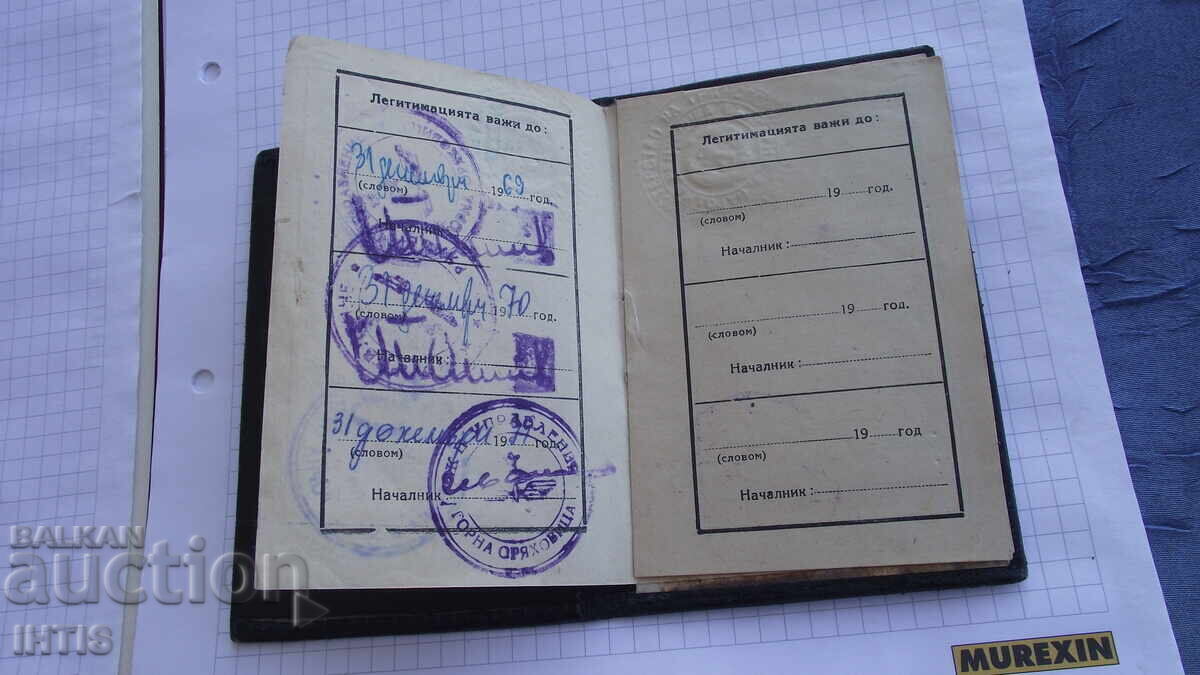 Легитимацията важи до:
31 декемврй 1969 год.
(словом)
Началник:
31 декемврй 1970 год.
(словом)
Началник:
31 декември 19 год.
(словом)
Началник
ГОРНА ОРЯХОВИЦА
Легитимацията важи до:
19 год.
(словом)
Началник:
19 год.
(словом)
Началник:
19 год
(словом)
Началник:
BALKAN
auction
IHTIS
MUREXIN